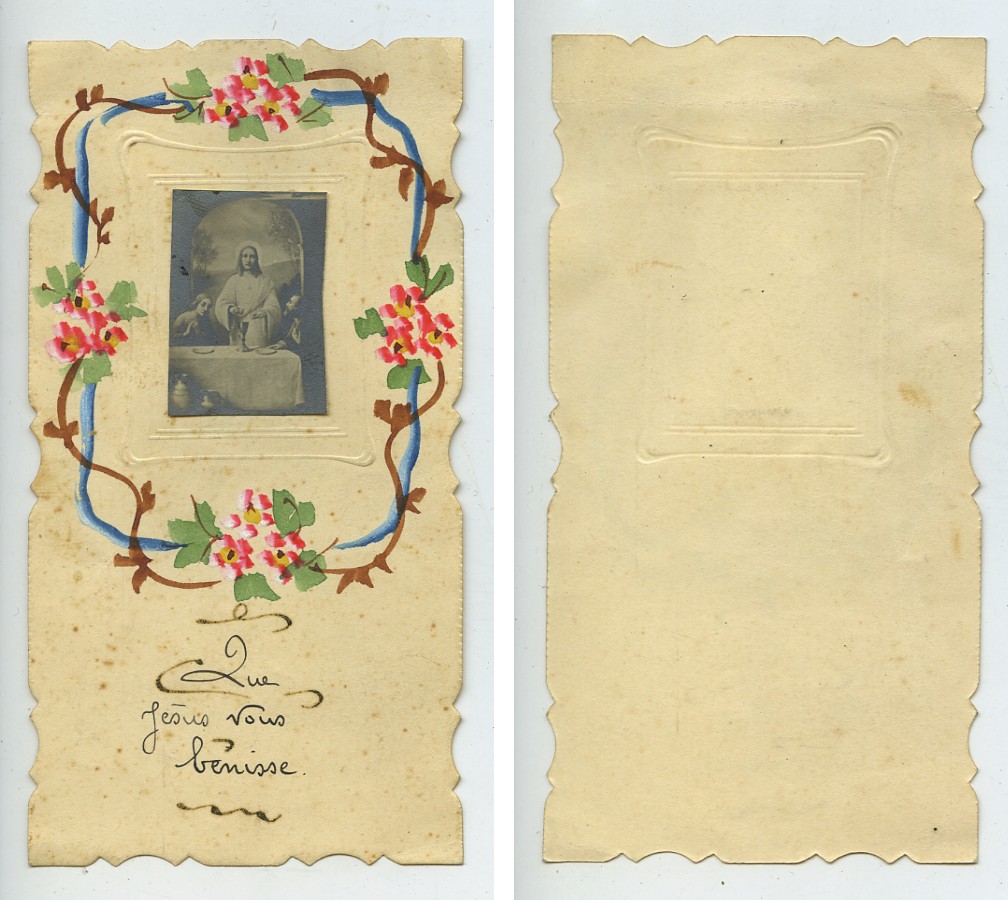 Que
Jésus vous
bénisse.